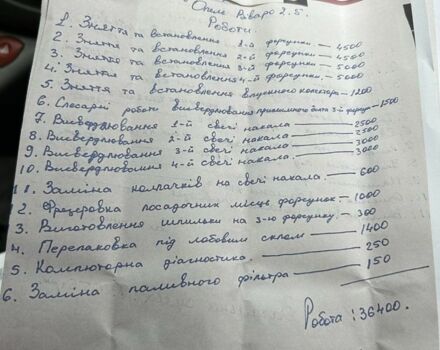 Опель Віваро 2.5.
Роботи.
1. Зняття та встановлення 1-ї форсунки. — 4500
2. Зняття та встановлення 2-й форсунки — 4500
3. Зняття та встановлення 3-й форсунки — 5000
4. Зняття та встановлення 4-й форсунки. — 5000
5. Зняття та встановлення впускного колектора — 1200
6. Слюсарні роботи висвердлювання прижимного болта 3-й форсун — 1500
7. Висвердлювання 1-й свечі накала — 2500
8. Висвердлювання 2-й свечі накала — 2500
9. Висвердлювання 3-й свечі накала — 3000
10. Висвердлювання 4-й свечі накала. — 3000
11. Заміна колпачків на свечі накала. — 600
2. Фрезеровка посадочних місць форсунок — 1000
3. Виготовлення шпильки на 3-ю форсунку. — 300
4. Перепаковка під лобовим склом — 1400
5. Компюторна діагностика. — 250
6. Заміна паливного фільтра — 150
Робота : 36400.